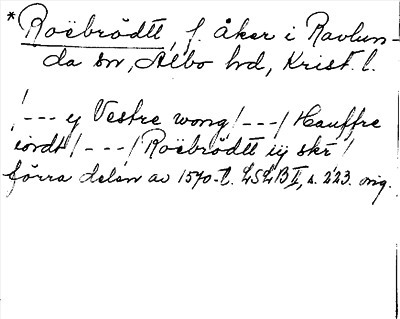 *Roëbrödtt, f. åker i Ravlun-
da sn, Albo hd, Krist. l.
/--- ij Vestre wong/---/Hauffre
iordt/---/Roëbrödtt iij skr/
förra delen av 1570-t. LSLB II, s. 223. orig.